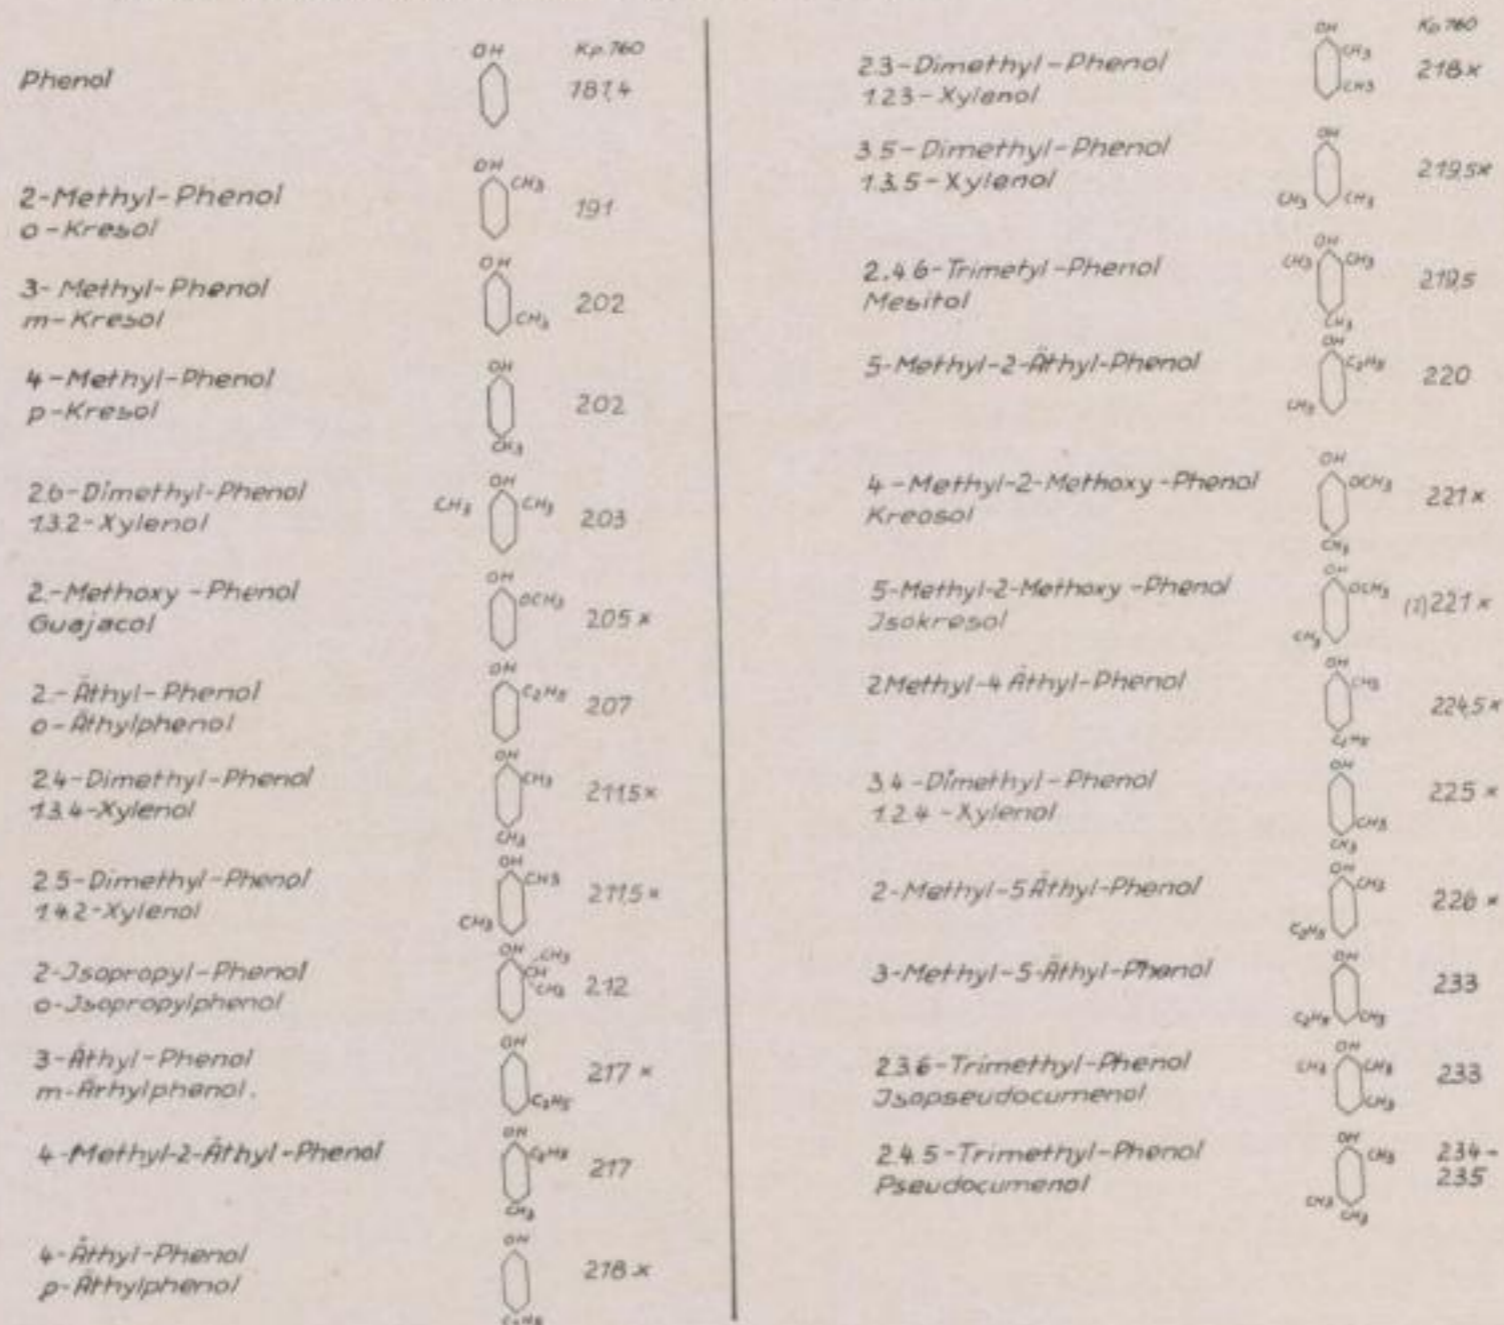 Kp.760
Phenol
OH
181,4
2-Methyl-Phenol
o-Kresol
OH
CH3
191
3-Methyl-Phenol
m-Kresol
OH
CH3
202
4-Methyl-Phenol
p-Kresol
OH
CH3
202
2.6-Dimethyl-Phenol
1.3.2-Xylenol
OH
CH3 CH3
203
2.-Methoxy-Phenol
Guajacol
OH
OCH3
205 x
2.-Äthyl-Phenol
o-Äthylphenol
OH
C2H5
207
2.4-Dimethyl-Phenol
1.3.4-Xylenol
OH
CH3
CH3
211,5 x
2.5-Dimethyl-Phenol
1.4.2-Xylenol
OH
CH3
CH3
211,5 x
2-Jsopropyl-Phenol
o-Jsopropylphenol
OH
CH3
CH
CH3
212
3-Äthyl-Phenol
m-Ärhylphenol.
OH
C2H5
217 x
4-Methyl-2-Äthyl-Phenol
OH
C2H5
CH3
217
4-Äthyl-Phenol
p-Äthylphenol
OH
C2H5
218 x
Kp.760
2.3-Dimethyl-Phenol
1.2.3-Xylenol
OH
CH3
CH3
218 x
3.5-Dimethyl-Phenol
1.3.5-Xylenol
OH
CH3 CH3
219,5 x
2.4.6-Trimetyl-Phenol
Mesitol
OH
CH3 CH3
CH3
219,5
5-Methyl-2-Äthyl-Phenol
OH
C2H5
CH3
220
4-Methyl-2-Methoxy-Phenol
Kreosol
OH
OCH3
CH3
221 x
5-Methyl-2-Methoxy-Phenol
Jsokresol
OH
OCH3
CH3
(?) 221 x
2Methyl-4Äthyl-Phenol
OH
CH3
C2H5
224,5 x
3.4-Dimethyl-Phenol
1.2.4-Xylenol
OH
CH3
CH3
225 x
2-Methyl-5Äthyl-Phenol
OH
CH3
C2H5
226 x
3-Methyl-5-Äthyl-Phenol
OH
C2H5 CH3
233
2.3.6-Trimethyl-Phenol
Jsopseudocumenol
OH
CH3 CH3
CH3
233
2.4.5-Trimethyl-Phenol
Pseudocumenol
OH
CH3
CH3
CH3
234-
235